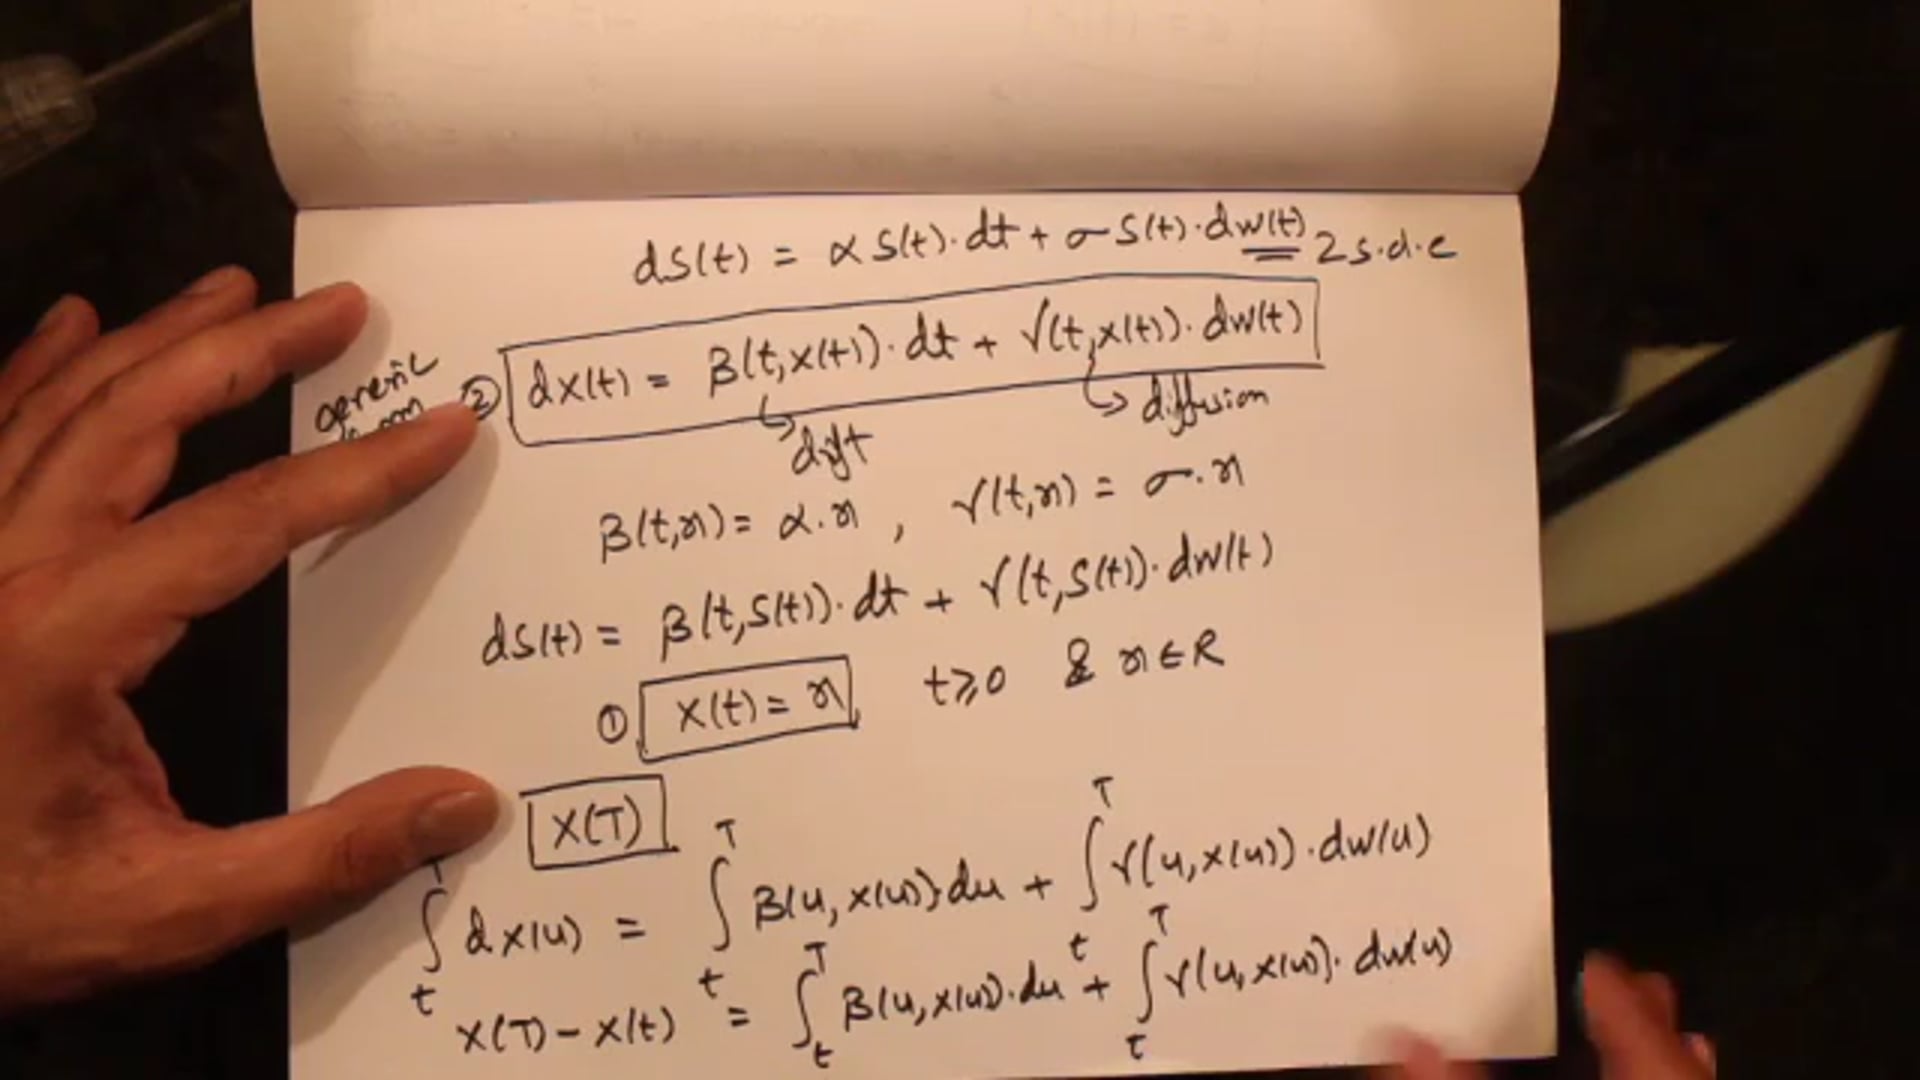 dS(t) = αS(t)·dt + σS(t)·dw(t) 2 s.d.e
generic
② dX(t) = β(t,X(t))·dt + γ(t,X(t))·dw(t)
↳ drift ↳ diffusion
β(t,x) = α·x , γ(t,x) = σ·x
dS(t) = β(t,S(t))·dt + γ(t,S(t))·dw(t)
① X(t) = x t≥0 & x∈R
X(T)
∫_t^T dX(u) = ∫_t^T β(u,X(u))·du + ∫_t^T γ(u,X(u))·dw(u)
X(T) − X(t) = ∫_t^T β(u,X(u))·du + ∫_t^T γ(u,X(u))·dw(u)